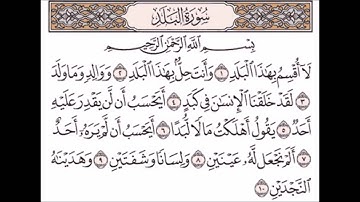 سُورَةُ الْبَلَدِ
بِسْمِ اللَّهِ الرَّحْمَٰنِ الرَّحِيمِ
لَآ أُقْسِمُ بِهَٰذَا الْبَلَدِ ١ وَأَنتَ حِلٌّۢ بِهَٰذَا الْبَلَدِ ٢ وَوَالِدٍ وَمَا وَلَدَ
٣ لَقَدْ خَلَقْنَا الْإِنسَٰنَ فِى كَبَدٍ ٤ أَيَحْسَبُ أَن لَّن يَقْدِرَ عَلَيْهِ
أَحَدٌ ٥ يَقُولُ أَهْلَكْتُ مَالًا لُّبَدًا ٦ أَيَحْسَبُ أَن لَّمْ يَرَهُۥٓ أَحَدٌ
٧ أَلَمْ نَجْعَل لَّهُۥ عَيْنَيْنِ ٨ وَلِسَانًا وَشَفَتَيْنِ ٩ وَهَدَيْنَٰهُ
النَّجْدَيْنِ ١٠